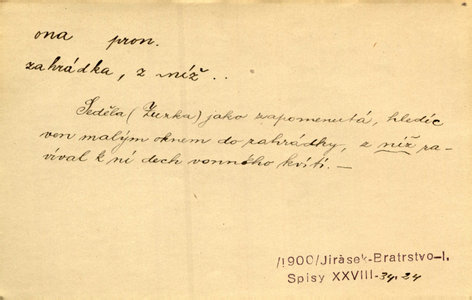 ona pron.
zahrádka, z níž ..
Seděla (Zuzka) jako zapomenutá, hledíc
ven malým oknem do zahrádky, z níž za-
víval k ní dech vonného kvítí. —
/1900/Jirásek-Bratrstvo-I.
Spisy XXVIII-34.24